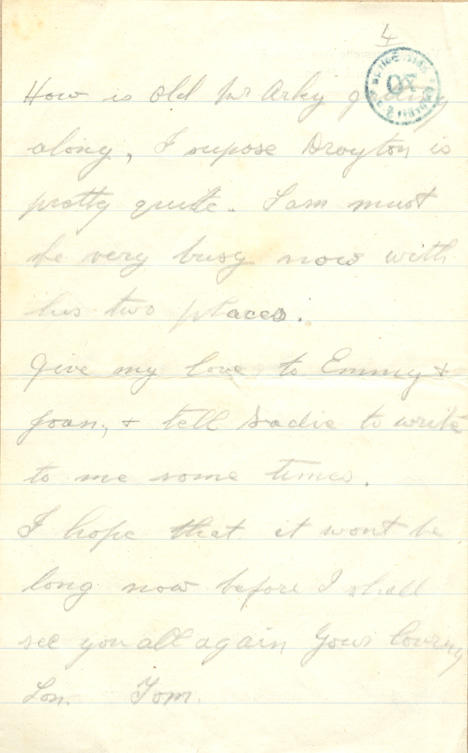 4
How is old Mr Arley
along, I supose Drayton is
pretty quite. Sam must
be very busy now with
his two places.
Give my love to Emmy &
Joan, & tell Sadie to write
to me some times.
I hope that it wont be
long now before I shall
see you all again Your loving
Son. Tom.